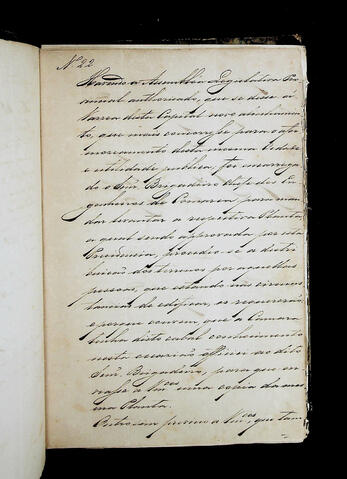 Nº 22
Havendo a Assembléa Legislativa Pro
vincial authorisado, que se désse á
 desta Capital novo alinhamen
to, que mais concorresse para o afor
moseamento desta mesma Cidade
e utilidade publica, foi encarrega
do o Snr. Brigadeiro Chefe dos En
genheiros de Comarca para man
dar levantar a respectiva Planta,
a qual sendo approvada por esta
Presidencia, procedeo-se á distri
buição dos terrenos por aquellas
pessoas, que estando nas circuns
tancias de edificar, os requererão
e porque convem, que a Camara
tenha disto cabal conhecimento
nesta occasião officio ao dito
Snr. Brigadeiro, para que en
 a Vm.ces uma copia da mes
ma Planta.
Outro sim previno a Vm.ces, que tam